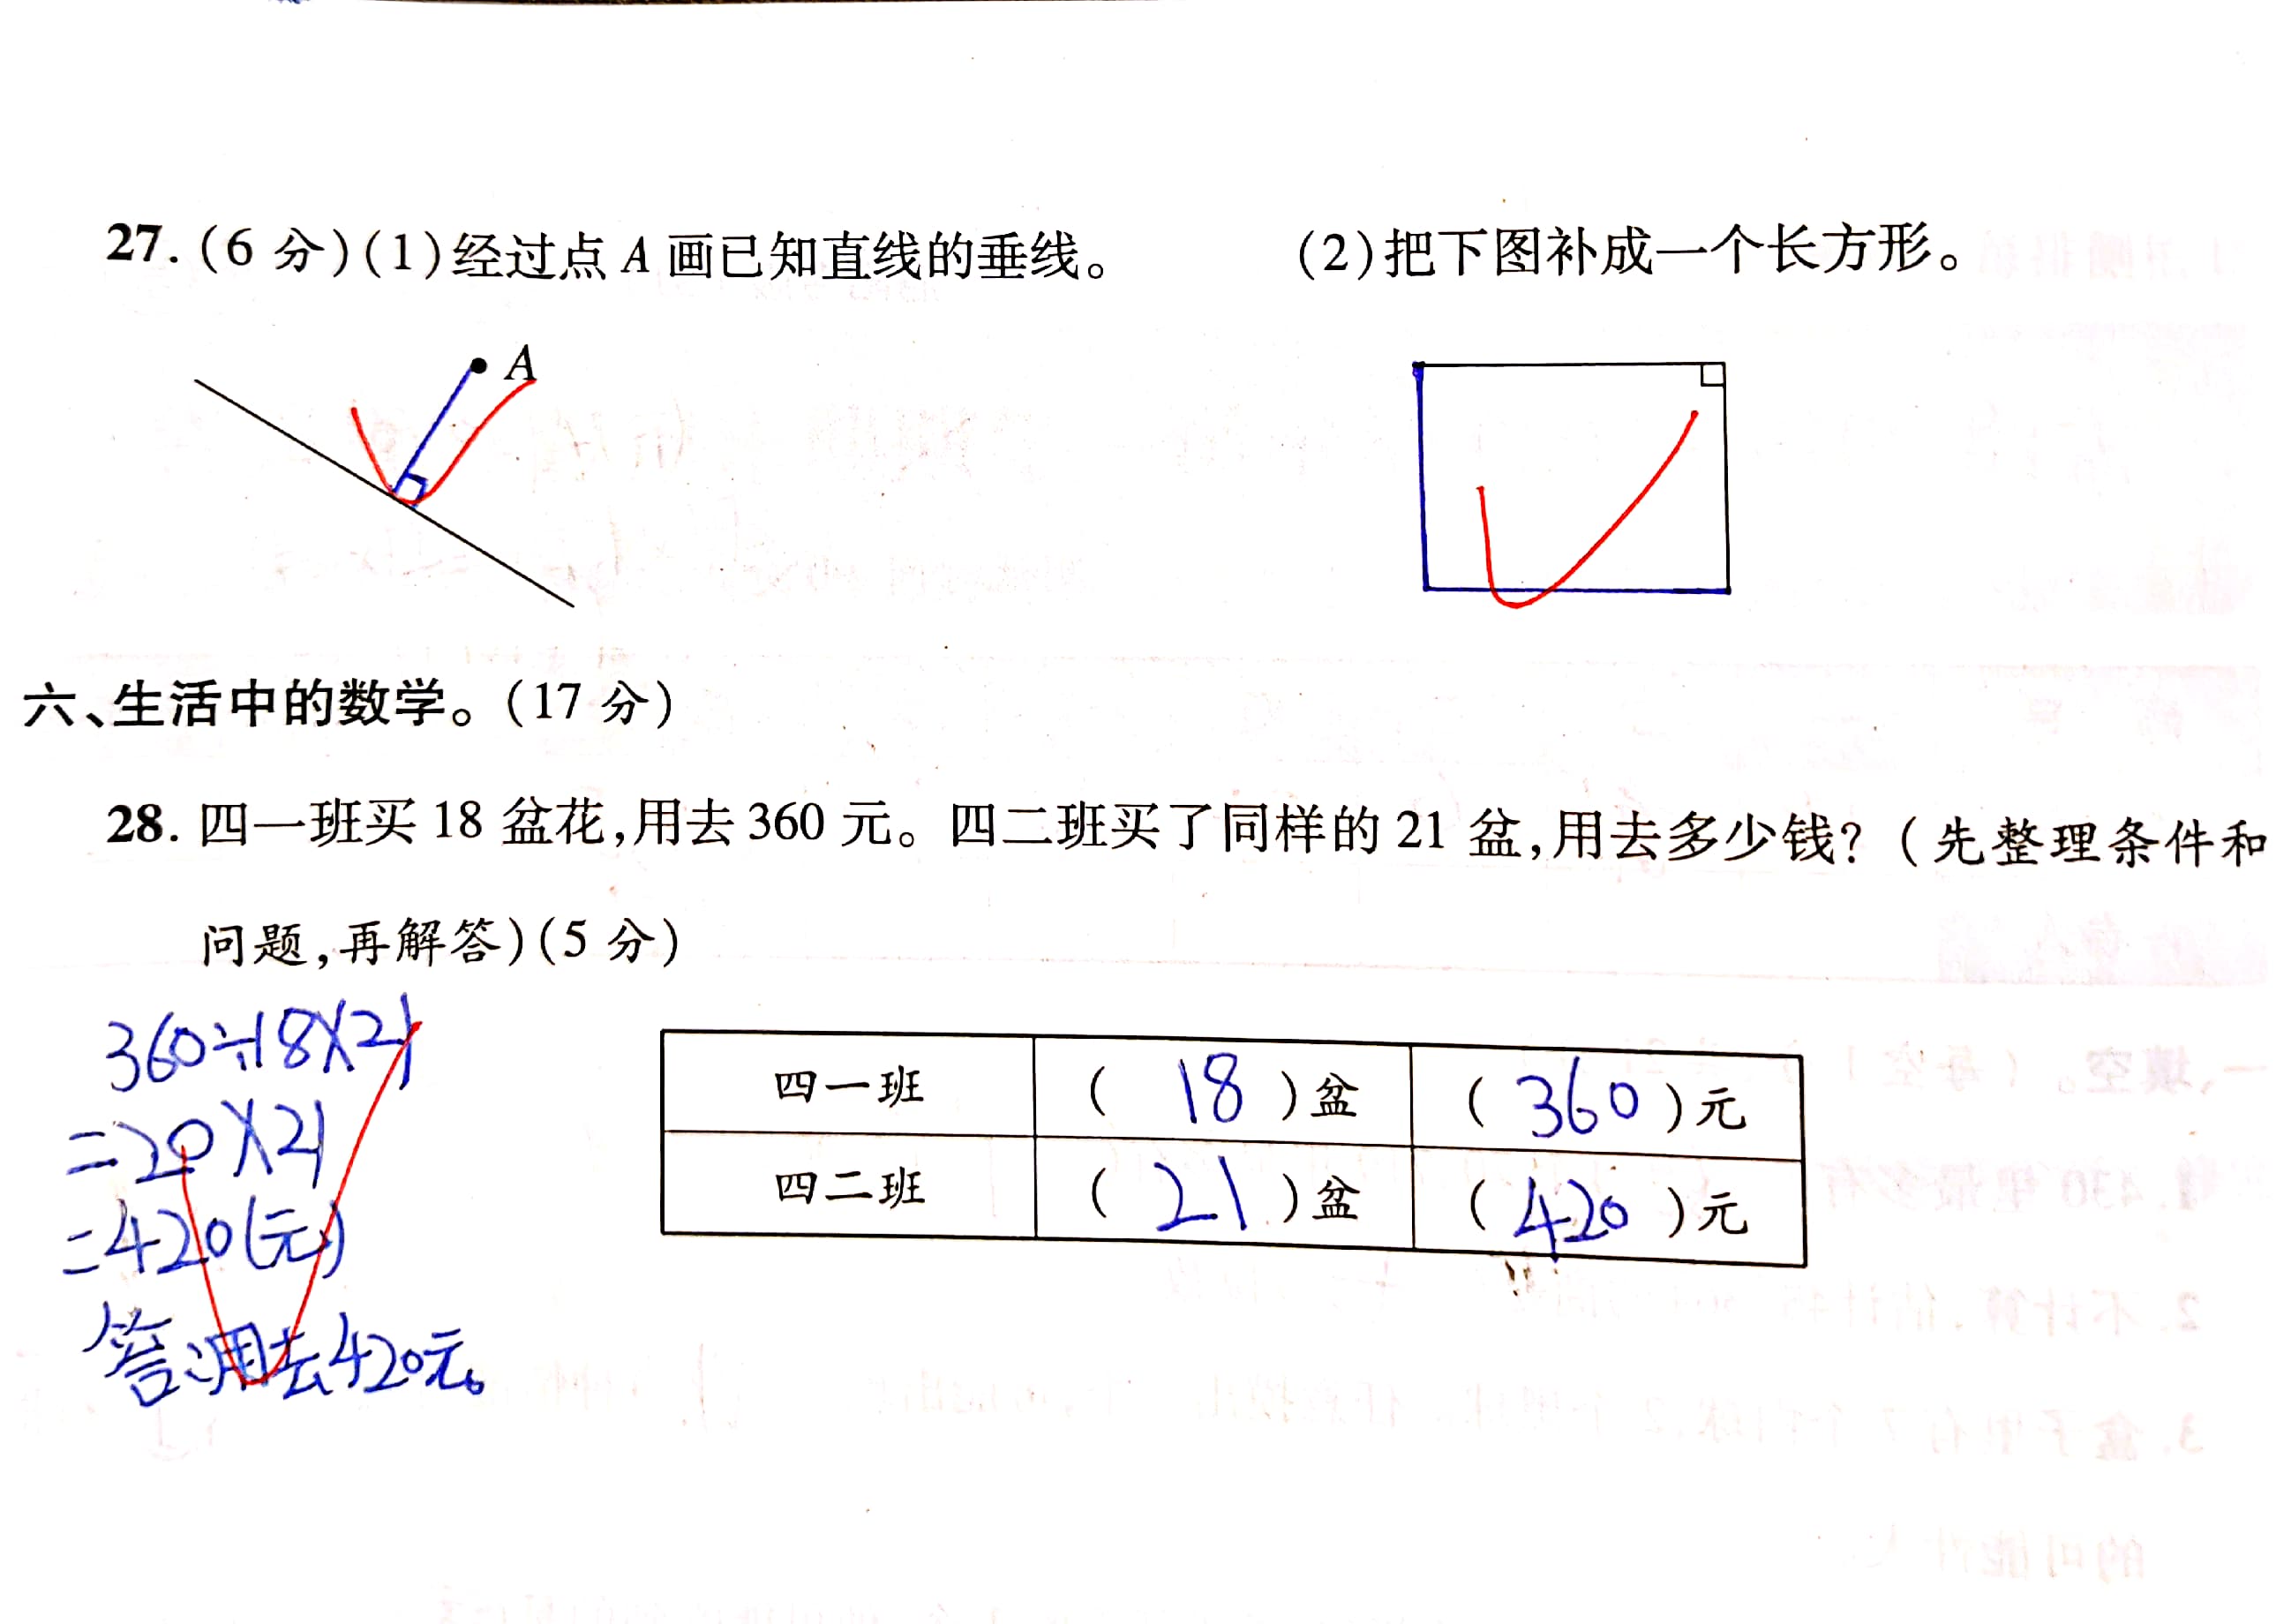 27. (6 分)(1)经过点 A 画已知直线的垂线。
(2)把下图补成一个长方形。
A
六、生活中的数学。(17 分)
28. 四一班买 18 盆花,用去 360 元。四二班买了同样的 21 盆,用去多少钱? (先整理条件和
问题,再解答)(5 分)
360÷18×21
=20×21
=420(元)
答:用去420元。
四一班 ( 18 )盆 ( 360 )元
四二班 ( 21 )盆 ( 420 )元